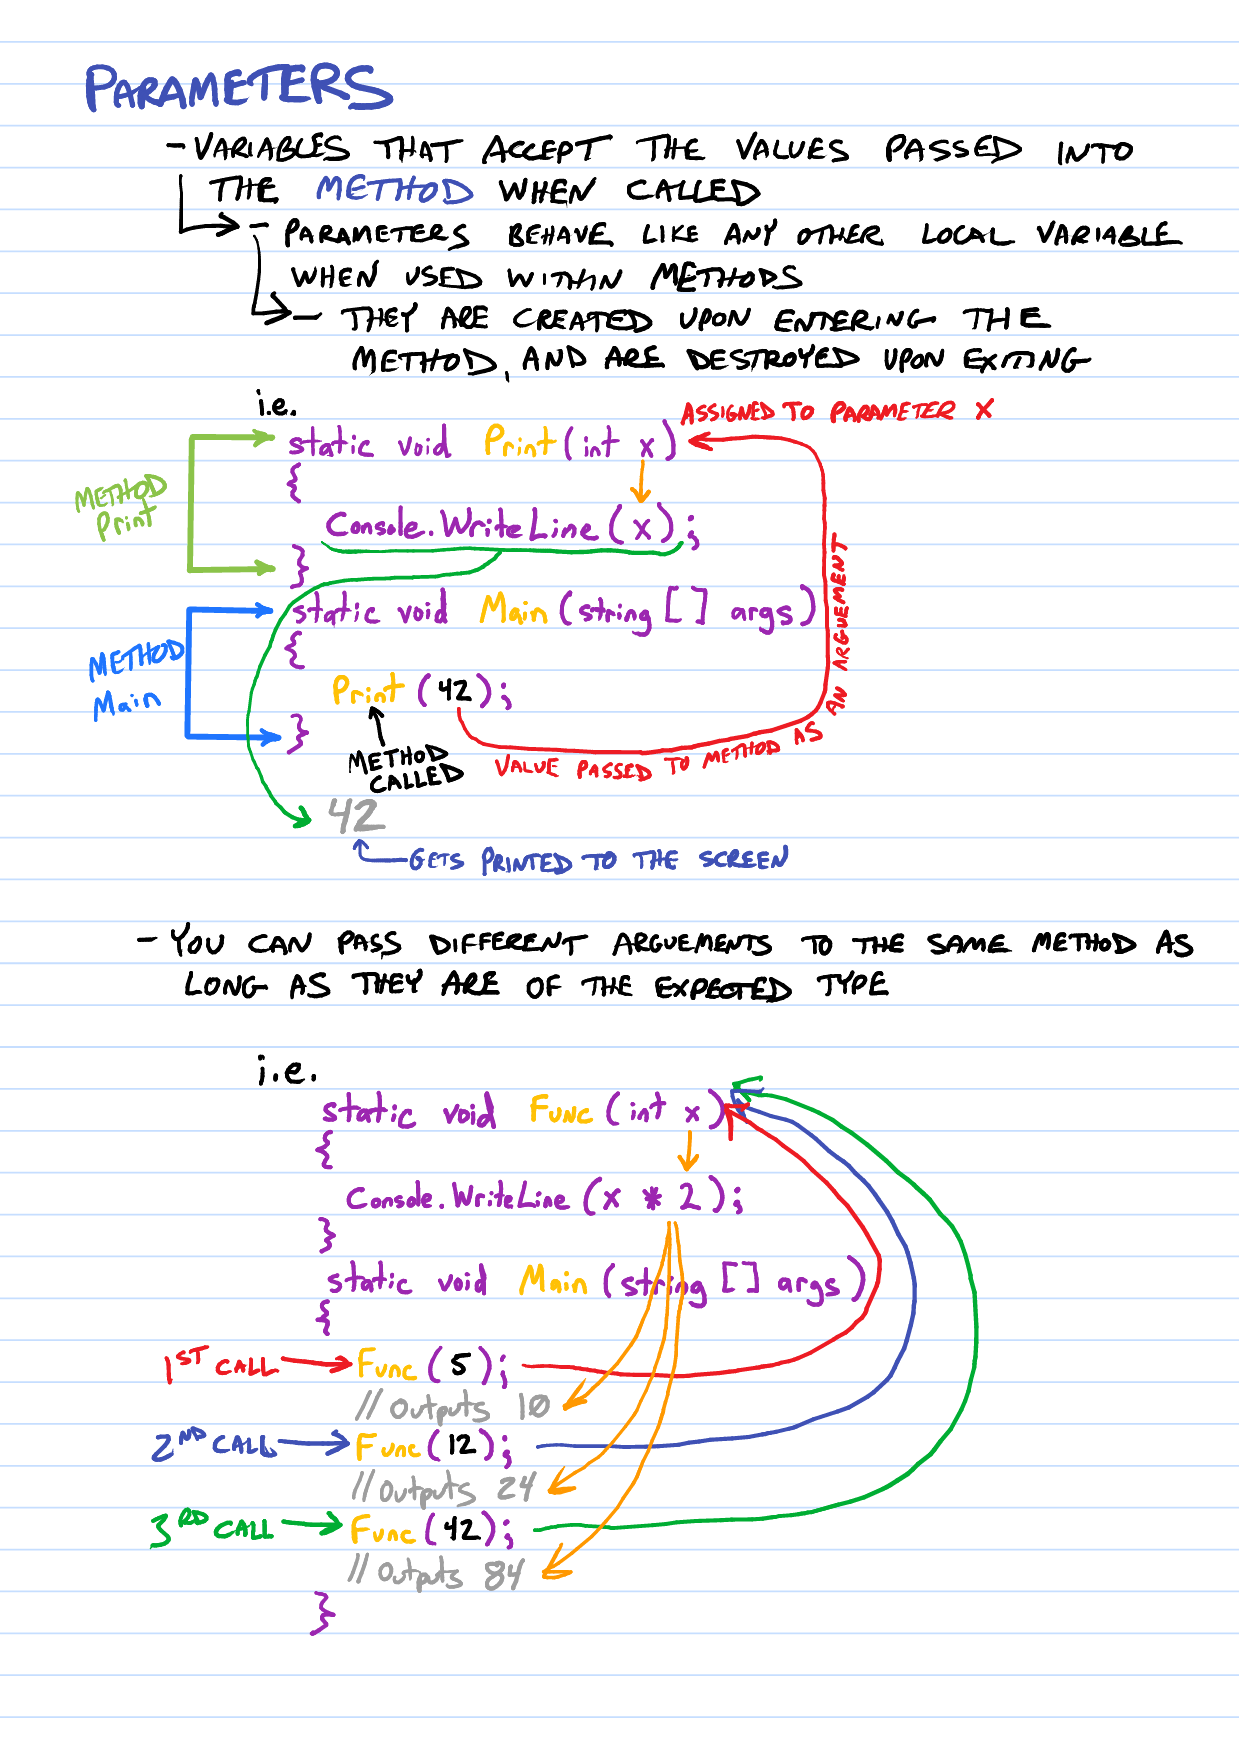 PARAMETERS
- VARIABLES THAT ACCEPT THE VALUES PASSED INTO
THE METHOD WHEN CALLED
- PARAMETERS BEHAVE LIKE ANY OTHER LOCAL VARIABLE
WHEN USED WITHIN METHODS
- THEY ARE CREATED UPON ENTERING THE
METHOD, AND ARE DESTROYED UPON EXITING
i.e.
ASSIGNED TO PARAMETER X
static void Print(int x)
{
METHOD
Print
Console.WriteLine(x);
}
static void Main(string[] args)
{
METHOD
Main
Print(42);
}
METHOD
CALLED
VALUE PASSED TO METHOD AS AN ARGUEMENT
42
GETS PRINTED TO THE SCREEN
- YOU CAN PASS DIFFERENT ARGUEMENTS TO THE SAME METHOD AS
LONG AS THEY ARE OF THE EXPECTED TYPE
i.e.
static void Func(int x)
{
Console.WriteLine(x * 2);
}
static void Main(string[] args)
{
1ST CALL Func(5);
// Outputs 10
2ND CALL Func(12);
// Outputs 24
3RD CALL Func(42);
// Outputs 84
}